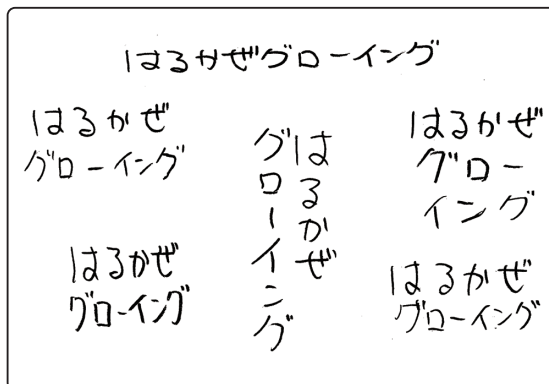 はるかぜグローイング
はるかぜ
グローイング
はるかぜ
グローイング
はるかぜ
グローイング
はるかぜ
グロー
イング
はるかぜ
グローイング